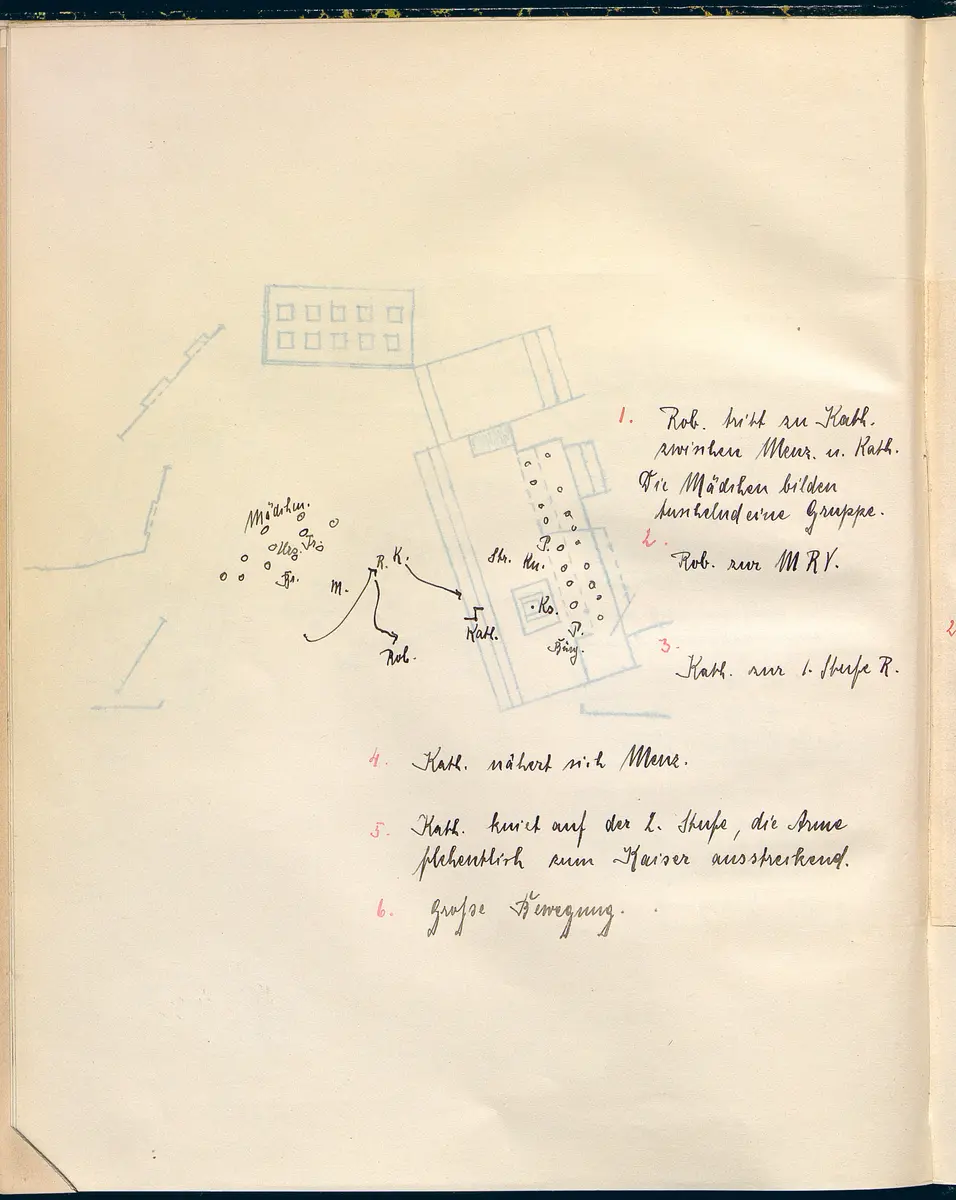 1. Rob. tritt zu Kath.
zwischen Menz. u. Kath.
Die Mädchen bilden
tuschelnd eine Gruppe.
2.
Rob. zur M R V.
3.
Kath. zur 1. Stufe R.
Mädchen.
Urg. Fr.
Be.
M.
R. K.
Rob.
Kath.
Str. Ku. P.
Ko.
P.
Bürg.
4. Kath. nähert sich Menz.
5. Kath. kniet auf der 2. Stufe, die Arme
flehentlich zum Kaiser ausstreckend.
6. Große Bewegung.
2